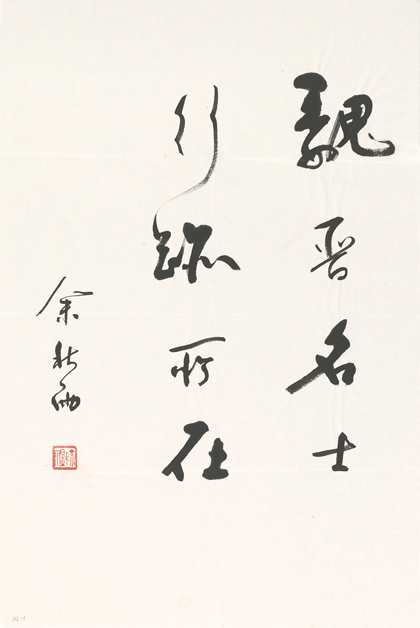 魏晋名士
行跡所在
余秋雨